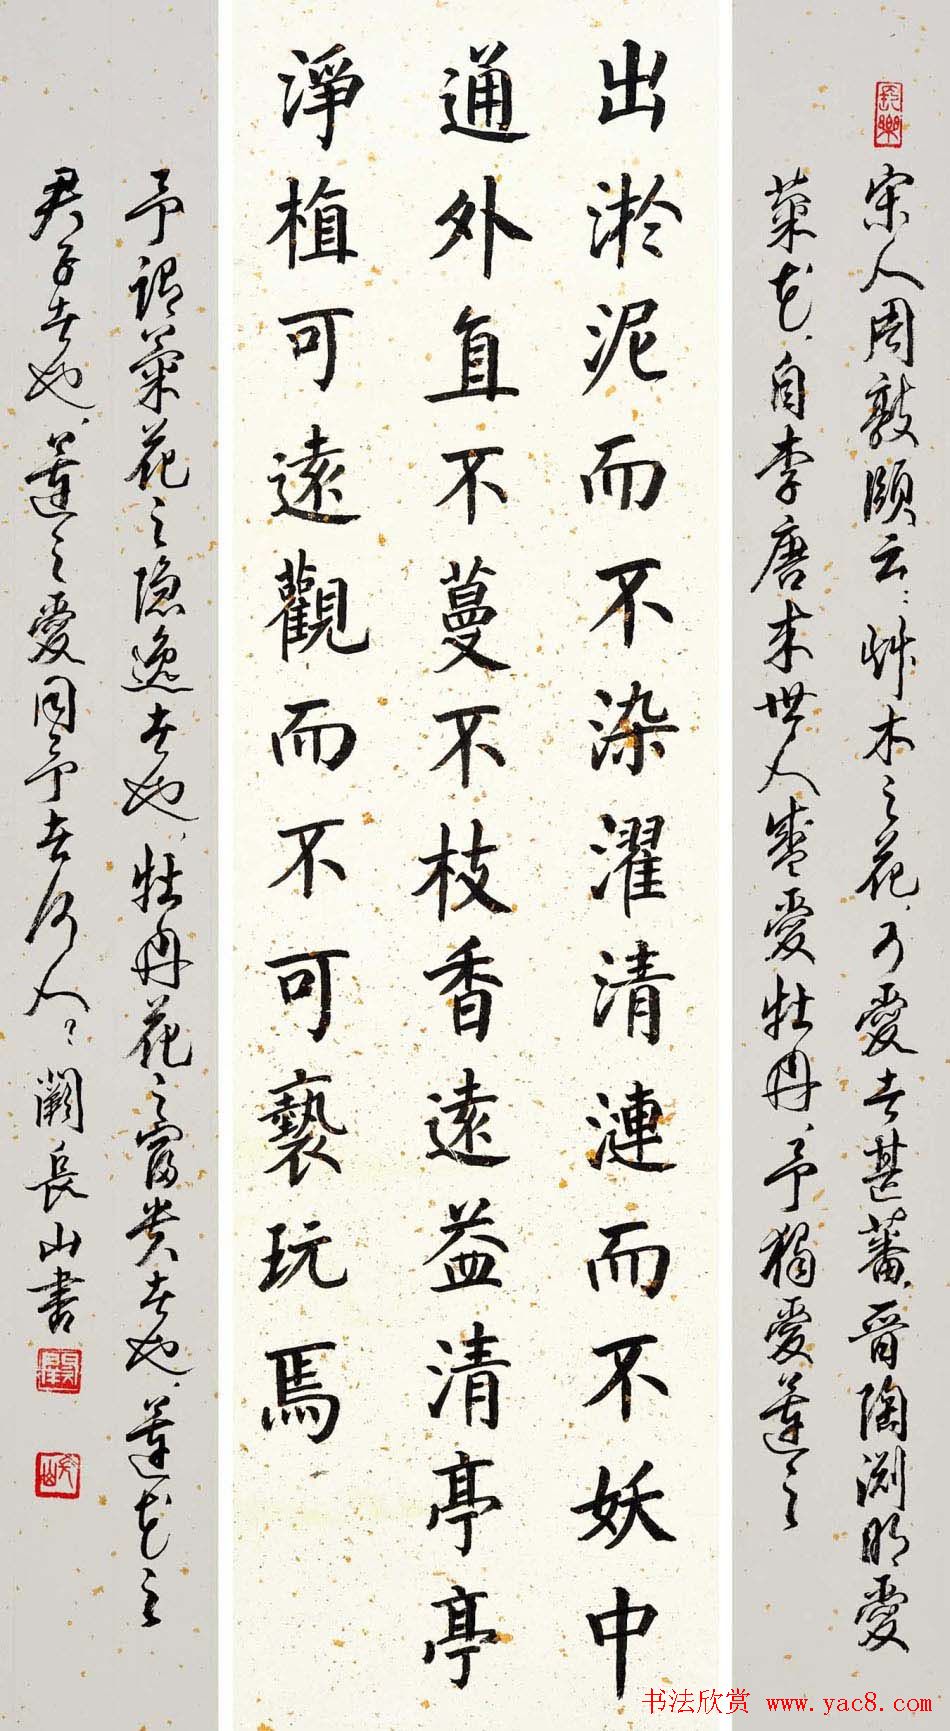 宋人周敦頤云：艸木之花，可愛者甚蕃，晋陶渊明愛
菊花，自李唐来世人盛愛牡丹，予獨愛蓮之
出淤泥而不染濯清漣而不妖中
通外直不蔓不枝香遠益清亭亭
淨植可遠觀而不可褻玩焉
予謂菊花之隐逸者也，牡丹花之富贵者也，蓮花之
君子者也，蓮之愛同予者何人？闞長山書
书法欣赏 www.yac8.com